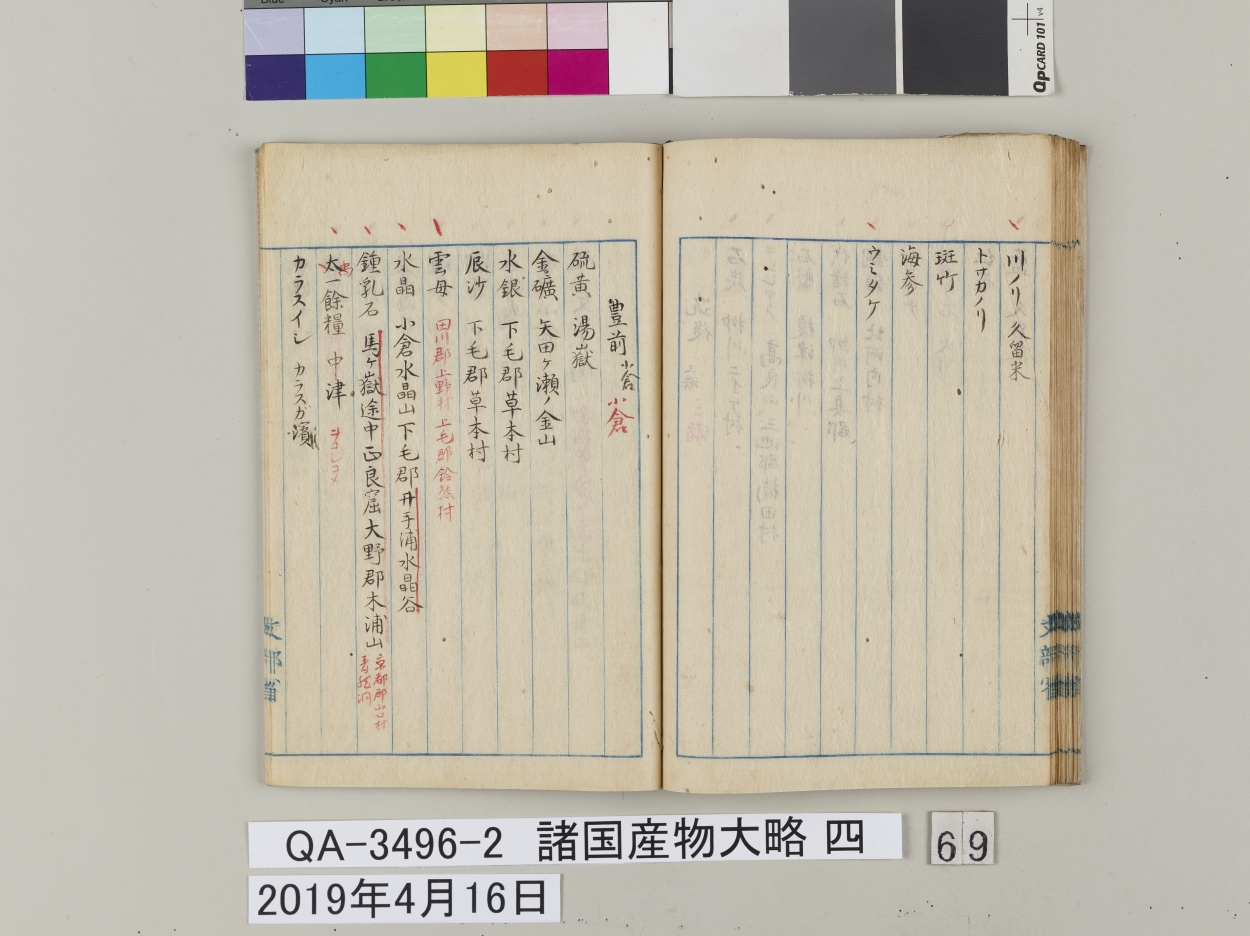 川ノリ 久留米
トサカノリ
斑竹
海参
ウミタケ
豊前 小倉 小倉
硫黄 湯嶽
金礦 矢田ケ瀬ノ金山
水銀 下毛郡草本村
辰沙 下毛郡草本村
雲母 田川郡上野村 上毛郡
水晶 小倉水晶山下毛郡井手浦水晶谷
鍾乳石 馬ケ嶽途中正良窟大野郡木浦山
京都郡山口村
青龍洞
太一餘糧 中津
カラスイシ カラスガ濱
文部省
文部省
QA-3496-2 諸国産物大略 四
69
2019年4月16日
QpCARD 101 v4